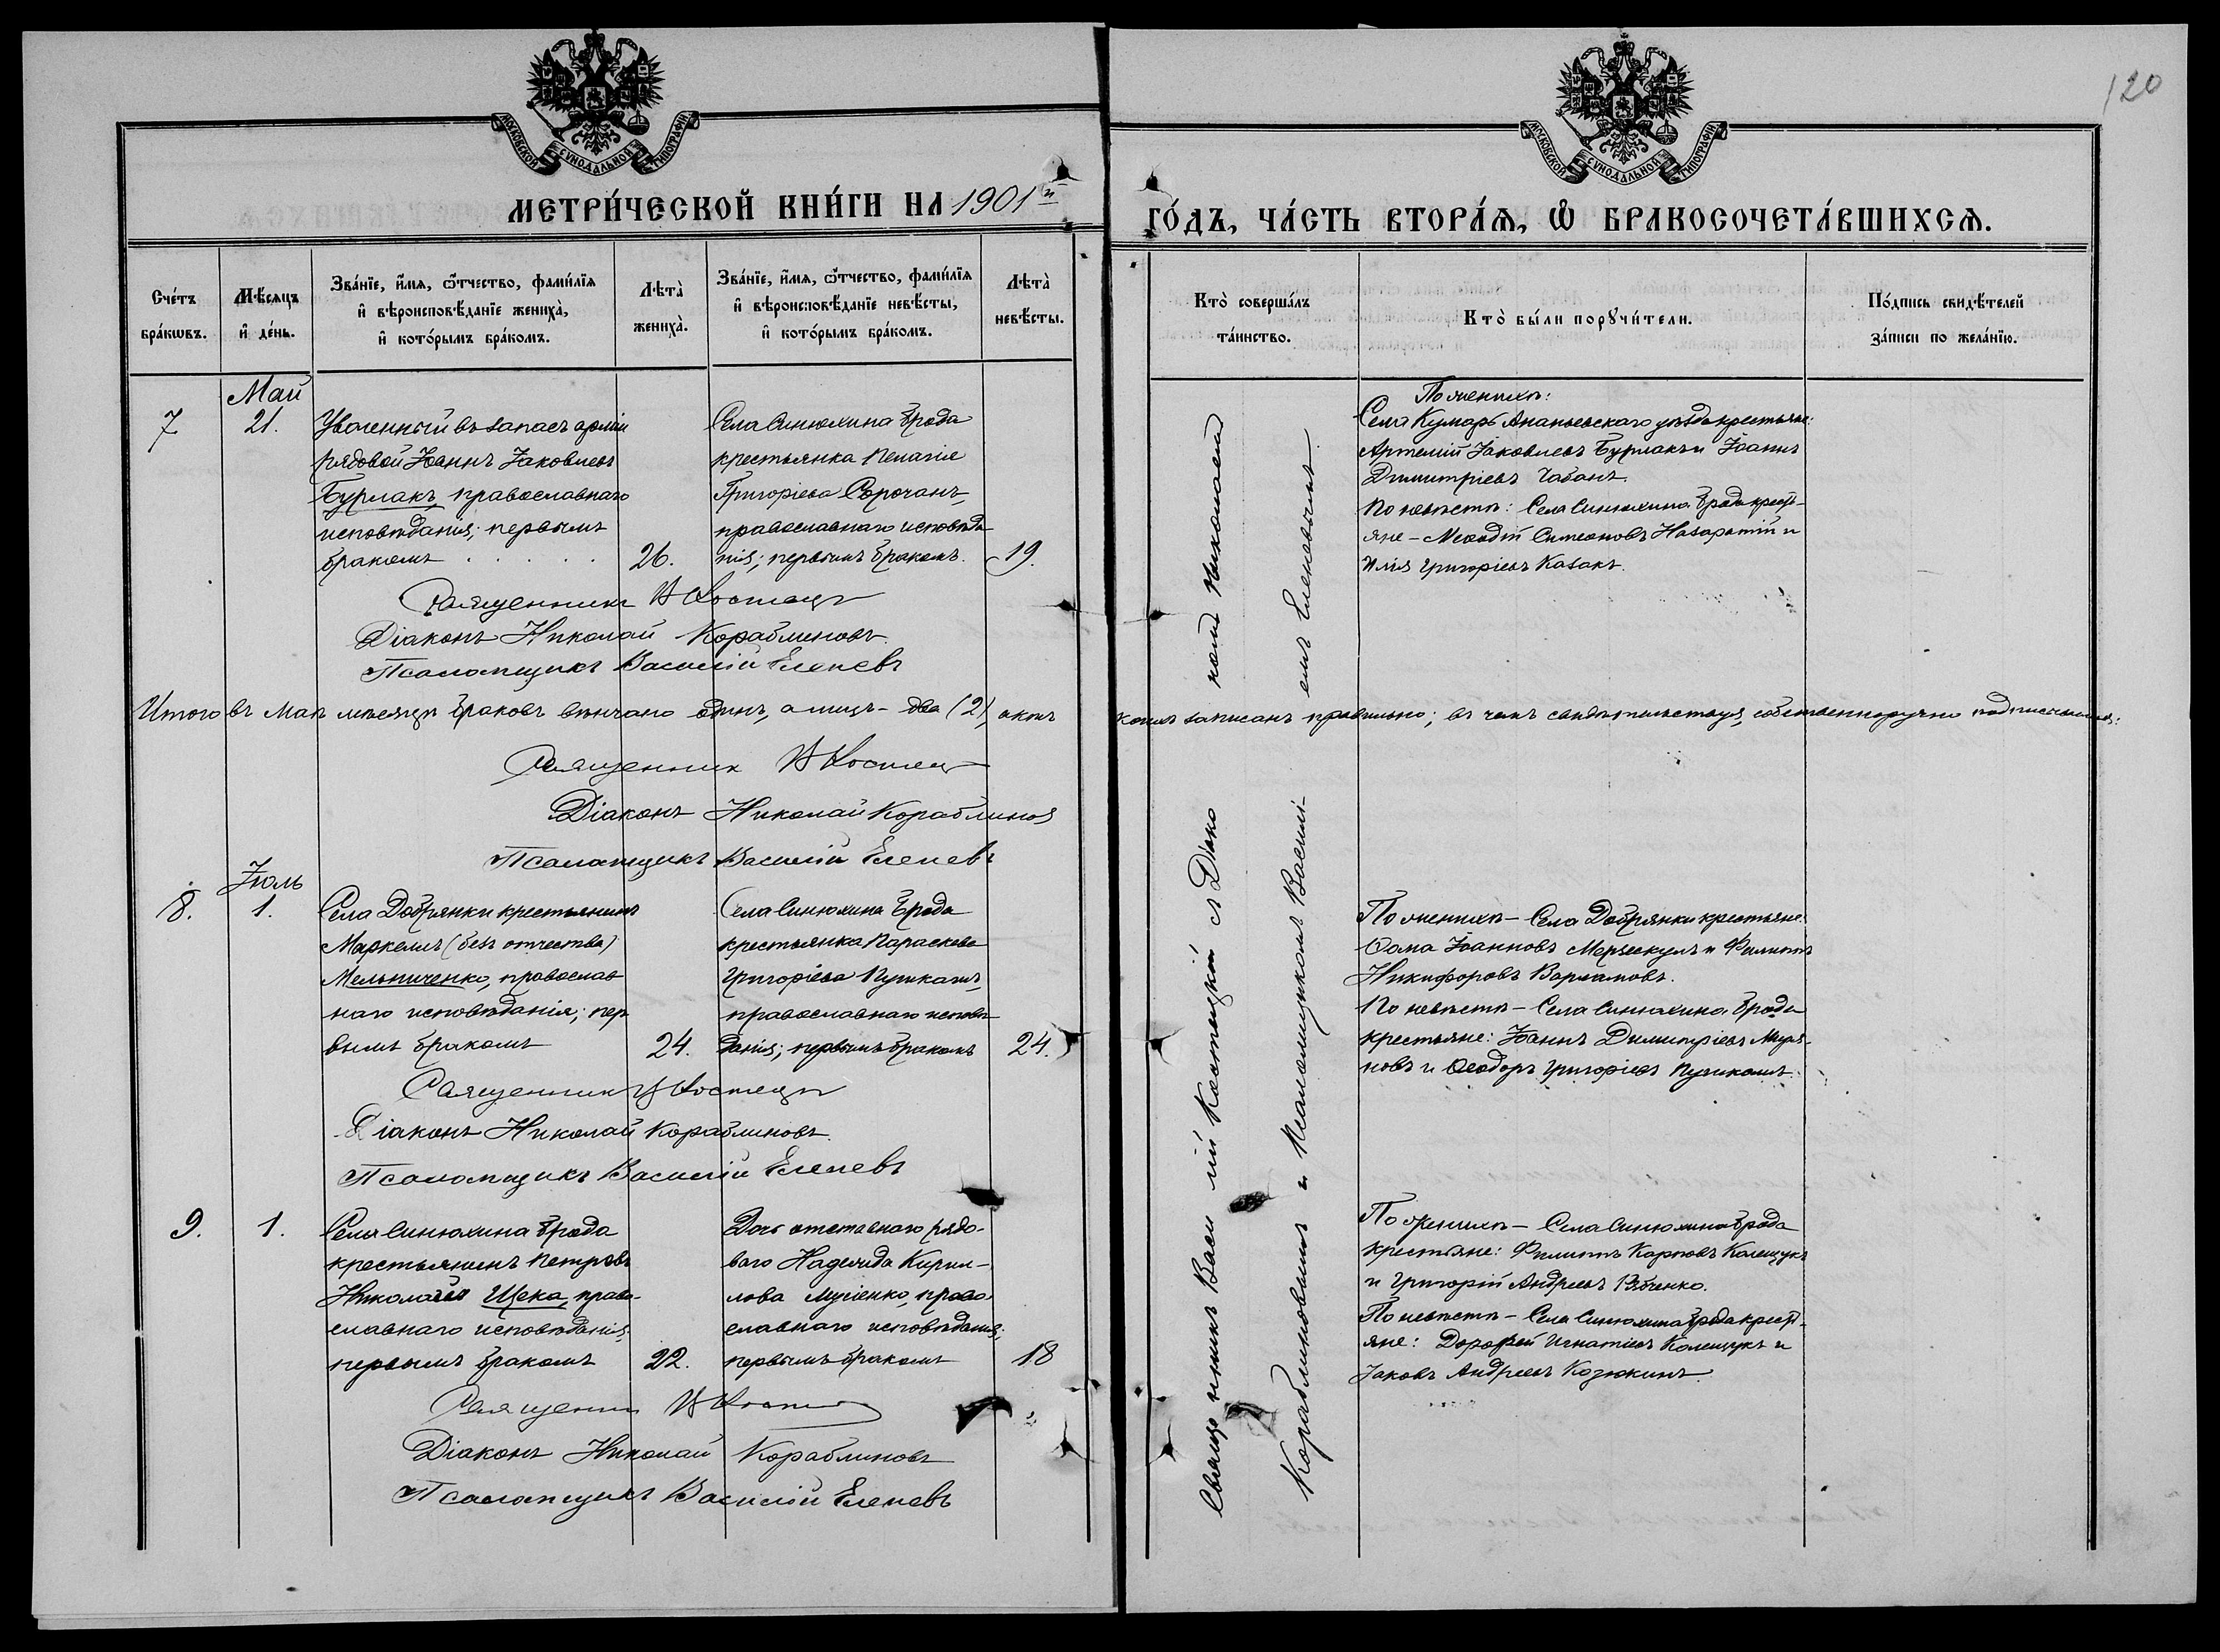 120
МОСКОВСКОЙ СѴНОДАЛЬНОЙ ТИПОГРАФІИ
МОСКОВСКОЙ СѴНОДАЛЬНОЙ ТИПОГРАФІИ
МЕТРИ́ЧЕСКОЙ КНИ́ГИ НА 1901й
ГО́ДЪ, ЧА́СТЬ ВТОРА́Ѧ, Ѽ БРАКОСОЧЕТА́ВШИХСѦ.
Сче́тъ бра́кѡвъ.
Мѣ́сяцъ и҆ де́нь.
Зва́нїе, и҆́мѧ, ѻ҆́тчество, фами́лїѧ
и҆ вѣроисповѣ́данїе жениха̀,
и҆ кото́рымъ бра́комъ.
Лѣта̀ жениха̀.
Зва́нїе, и҆́мѧ, ѻ҆́тчество, фами́лїѧ
и҆ вѣроисповѣ́данїе невѣ́сты,
и҆ кото́рымъ бра́комъ.
Лѣта̀ невѣ́сты.
Кто̀ соверша́лъ та́инство.
Кто̀ бы́ли порꙋчи́тели.
По́дпись свидѣ́телей за́писи по жела́нїю.
Май
7
21.
Уволенный въ запасъ арміи
рядовой Іоаннъ Іаковлевъ
Бурлакъ, православнаго
исповѣданія; первымъ
бракомъ . . . . .
26.
Села Синюхина Брода
крестьянка Пелагіе
Григоріева Сорочанъ,
православнаго исповѣда
нія; первымъ бракомъ.
19.
По женихѣ:
Села Кумаръ Ананьевскаго уѣзда крестьяне:
Артемій Іаковлевъ Бурлакъ и Іоаннъ
Димитріевъ Чабанъ.
По невѣстѣ: Села Синюхина Брода крест-
яне – Меѳодій Симеоновъ Назаратій и
Илія Григоріевъ Казакъ.
Священникъ В Костец
Діаконъ Николай Кораблиновъ.
Псаломщикъ Василій Еленевъ
Итого въ маѣ мѣсяцѣ браковъ вѣнчано одинъ, а лицъ – два (2), а кѣмъ
комъ записанъ правильно; въ чемъ свидѣтельствуя, собственноручно подписываемся:
Священник В Костец
Діаконъ Николай Кораблинов
Псаломщикъ Василій Еленевъ
Іюль
8.
1.
Села Добрянки крестьянинъ
Маркелъ (безъ отчества)
Мельниченко, православ
наго исповѣданія; пер
вымъ бракомъ
24.
Села Синюхина Брода
крестьянка Параскева
Григоріева Пушкашъ,
православнаго исповѣ
данія; первымъ бракомъ
24.
По женихѣ – Села Добрянки крестьяне:
Ѳома Іоанновъ и Филиппъ
Никифоровъ Варламовъ.
По невѣстѣ – Села Синюхина Брода
крестьяне: Іоаннъ Димитріевъ
новъ и Ѳеодоръ Григоріевъ Пушкашъ.
Священник В Костецк
Діаконъ Николай Кораблиновъ.
Псаломщикъ Василій Еленевъ
9.
1.
Села Синюхина Брода
крестьянинъ Петровъ
Николай Щека, право-
славнаго исповѣданія,
первымъ бракомъ
22.
Дочь отставнаго рядо-
ваго Надежда Кирил-
лова Мусіенко, право-
славнаго исповѣданія;
первымъ бракомъ
18
По женихѣ – Села Синюхина Брода
крестьяне: Филиппъ Карповъ Колещукъ
и Григорій Андреевъ Рябченко.
По невѣстѣ – Села Синюхина Брода крест-
яне: Дороѳей Игнатіевъ Колещукъ и
Іаковъ Андреевъ Козюкинъ.
Священник В Кост
Діаконъ Николай Кораблиновъ
Псаломщикъ Василій Еленевъ
Священникъ Василій Костецкій съ Діакономъ Николаемъ
Кораблиновымъ и Псаломщикомъ Василіемъ Еленевымъ.